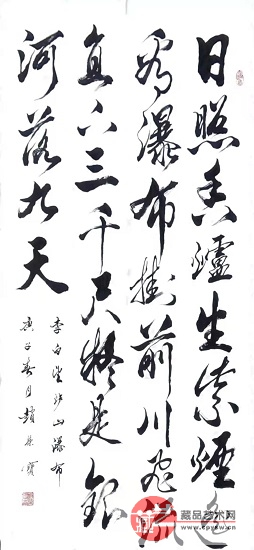 日照香爐生紫煙遙
看瀑布掛前川飛流
直下三千尺疑是銀
河落九天
李白望庐山瀑布
庚子春月趙
藏品技术网